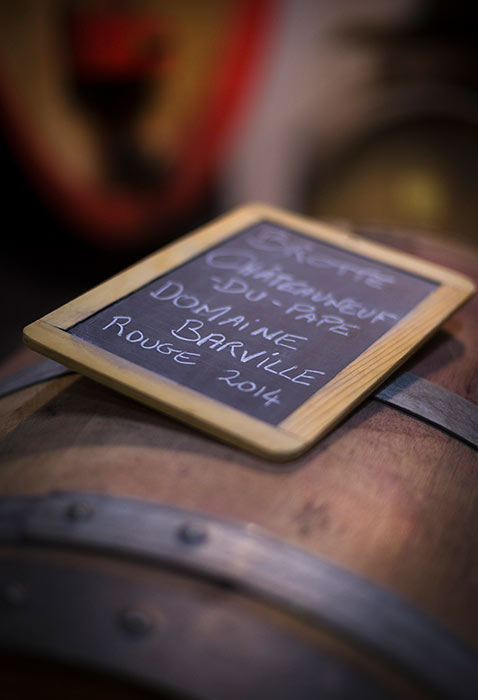 BROTTE
CHÂTEAUNEUF
-DU-PAPE
DOMAINE
BARVILLE
ROUGE 2014